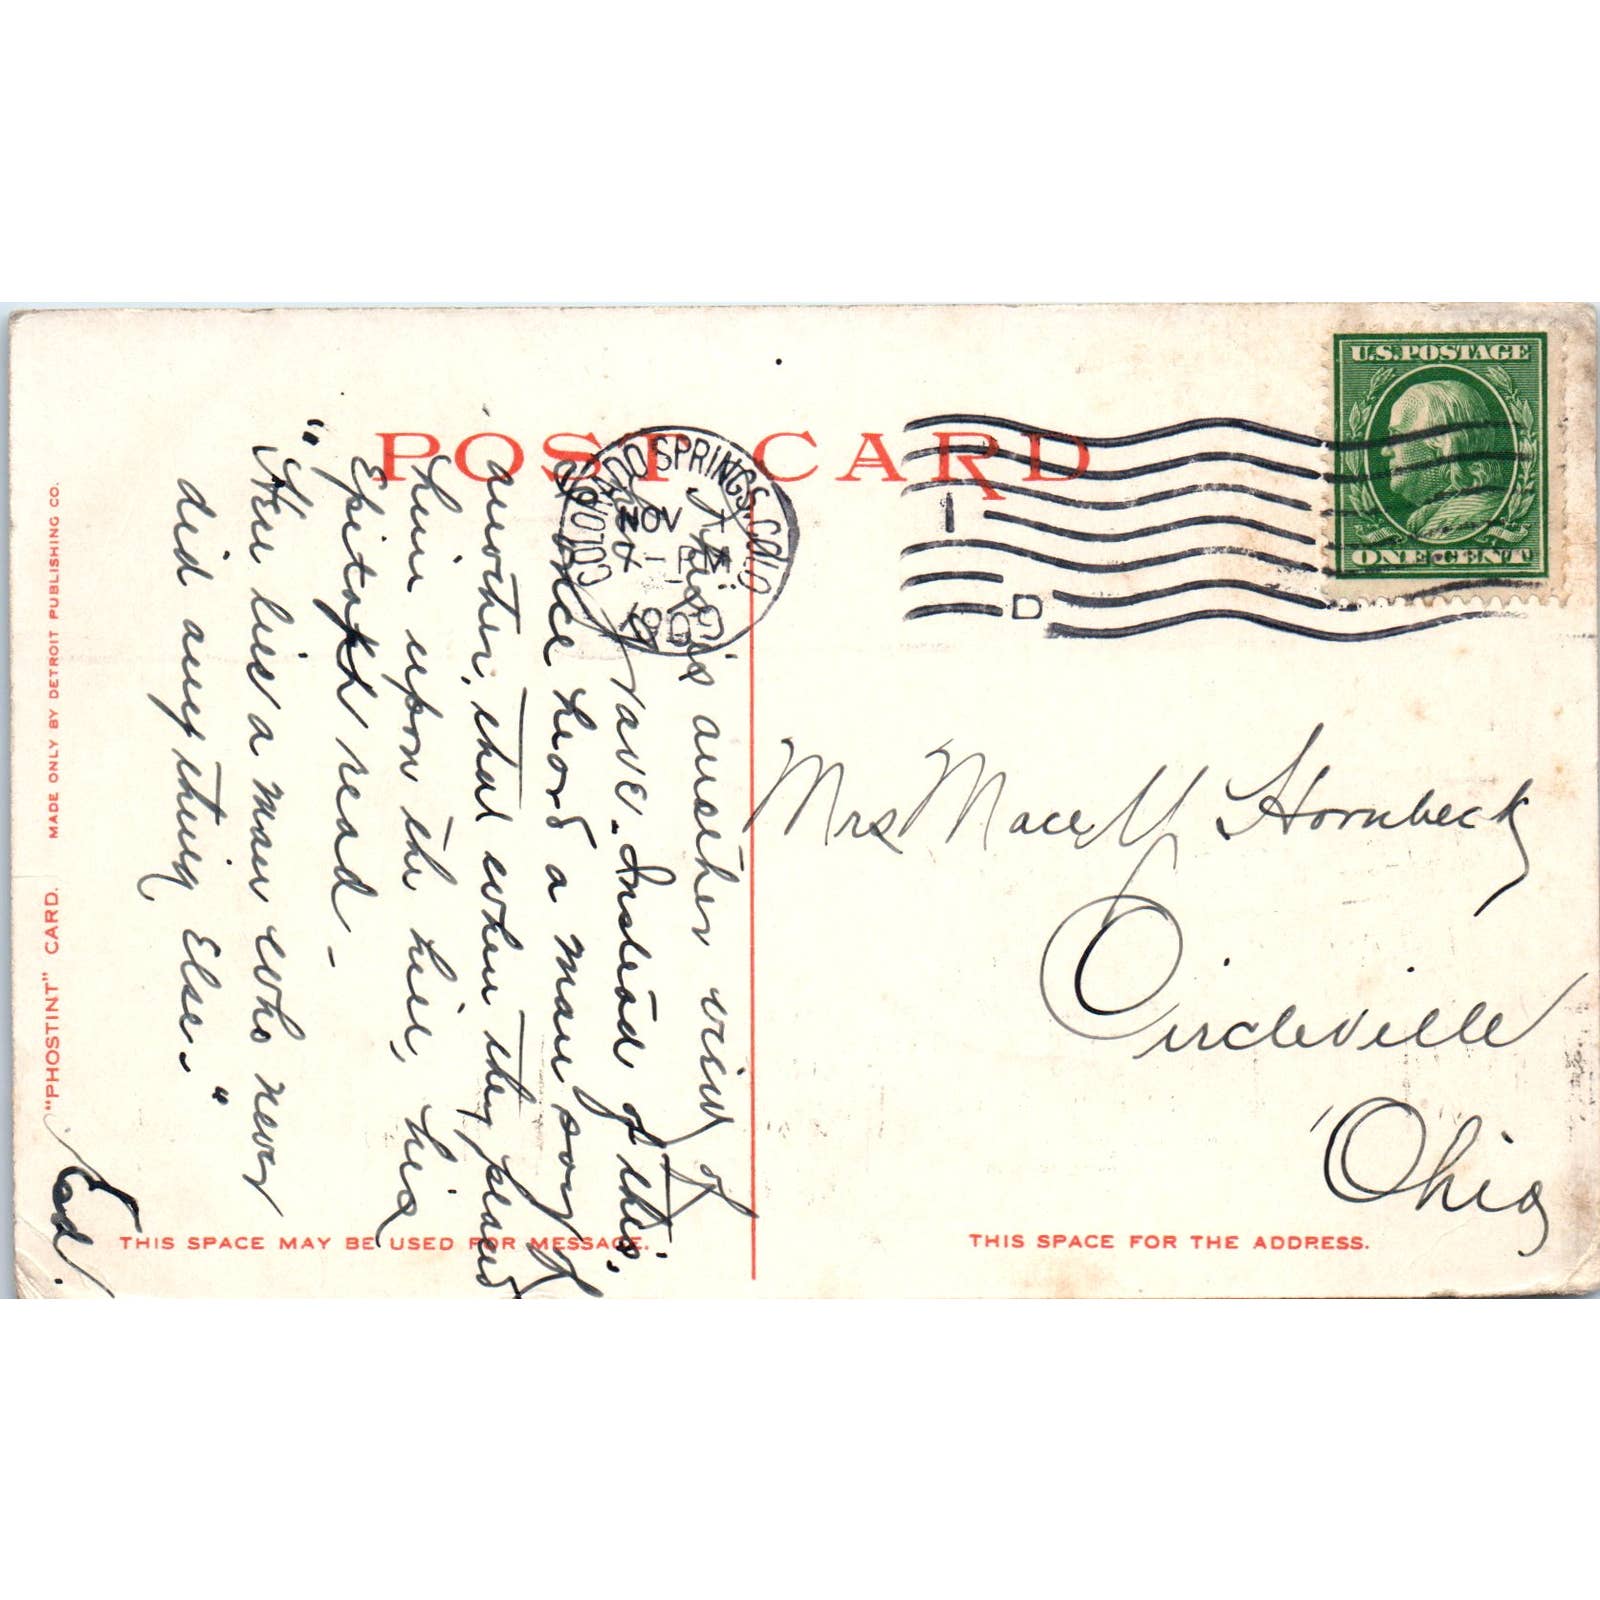 POST CARD
COLORADO SPRINGS. COLO
NOV
4 - PM
1909
1
D
U.S.POSTAGE
ONE CENT
This is another view of
the grave. Instead of this.
I once heard a man say of
another, that when they placed
him upon the hill, his
Epitaph read -
"Here lies a man who never
did any thing Else."
Ed.
Mrs Mace Hornbeck
Circleville
Ohio
THIS SPACE MAY BE USED FOR MESSAGE.
THIS SPACE FOR THE ADDRESS.
"PHOSTINT" CARD. MADE ONLY BY DETROIT PUBLISHING CO.